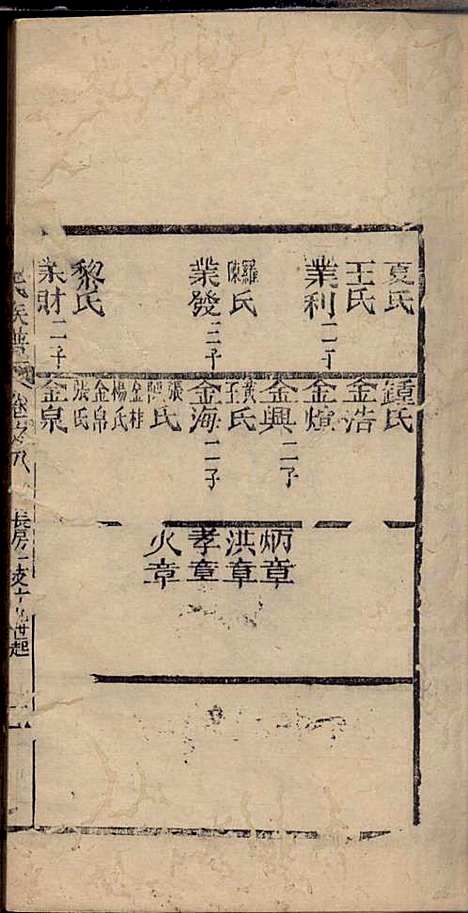 夏氏
王氏
業利二子
羅陳氏
業發三子
黎氏
業財二子
鍾氏
金浩
金煊
金興二子
黃王氏
金海二子
張陳氏
金桂
楊氏
金帛
張氏
金泉
炳章
洪章
孝章
火章
氏族譜
卷之八
長房一支十九世起